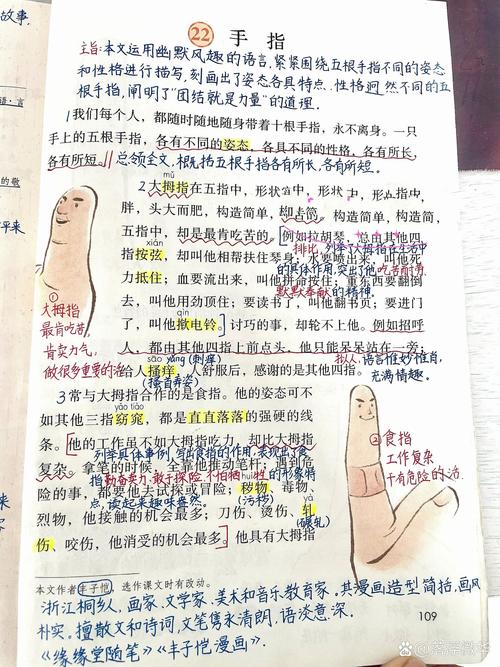 故事.
22 手指
主旨:本文运用幽默风趣的语言,紧紧围绕五根手指不同的姿态
和性格进行描写,刻画出了姿态各具特点.性格迥然不同的五
根手指,阐明了"团结就是力量"的道理.
1我们每个人,都随时随地随身带着十根手指,永不离身。一只
手上的五根手指,各有不同的姿态,各具不同的性格,各有所长,
各有所短。
总领全文,概括五根手指各有所长,各有所短.
mǔ
2大拇指在五指中,形状
胖,头大而肥,构造简单,
五指中,却是最肯吃苦的。例如拉胡琴,总由其他四
排比
xián
指按弦,却叫他相帮扶住琴身;水要喷出来,叫他死
的具体作用,突出了他吃苦耐劳
力抵住;血要流出来,叫他拼命按住;重东西要翻倒
默默奉献的精神.
去,叫他用劲顶住;要读书了,叫他翻书页;要进门
qìn
了,叫他揿电铃。讨巧的事,却轮不上他。例如招呼
人,都由其他四指上前点头,他只能呆呆站在一旁;
sāo yǎng(刺痒)
给人搔痒,人舒服后,感谢的是其他四指。
(搔首弄姿)
拟人,语言惟妙惟肖,
充满情趣.
①
大拇指
最肯吃苦
肯卖力气,
做很多重要的活
3常与大拇指合作的是食指。他的姿态可不
yǎo tiǎo
如其他三指窈窕,都是直直落落的强硬的线
条。他的工作虽不如大拇指吃力,却比大拇指
列举具体事例,写出食指的作用,表现出了食
复杂。拿笔的时候,全靠他推动笔杆;遇到危
指勤奋卖力,敢于探险,不怕牺牲的形象特
险的事,都要他去试探或冒险;秽物、毒物、
huì
点,读起来趣味盎然.
(污秽)
烈物,他接触的机会最多;刀伤、烫伤、轧
yà
(碾轧)
伤、咬伤,他消受的机会最多。他具有大拇指
②食指
工作复杂
十有危险的活.
本文作者丰子恺,选作课文时有改动。
浙江桐乡人,画家.文学家.美术和音乐教育家,其漫画造型简括,画风
朴实.擅散文和诗词,文笔隽永清朗,语淡意深.
《缘缘堂随笔》《丰子恺漫画》.
109